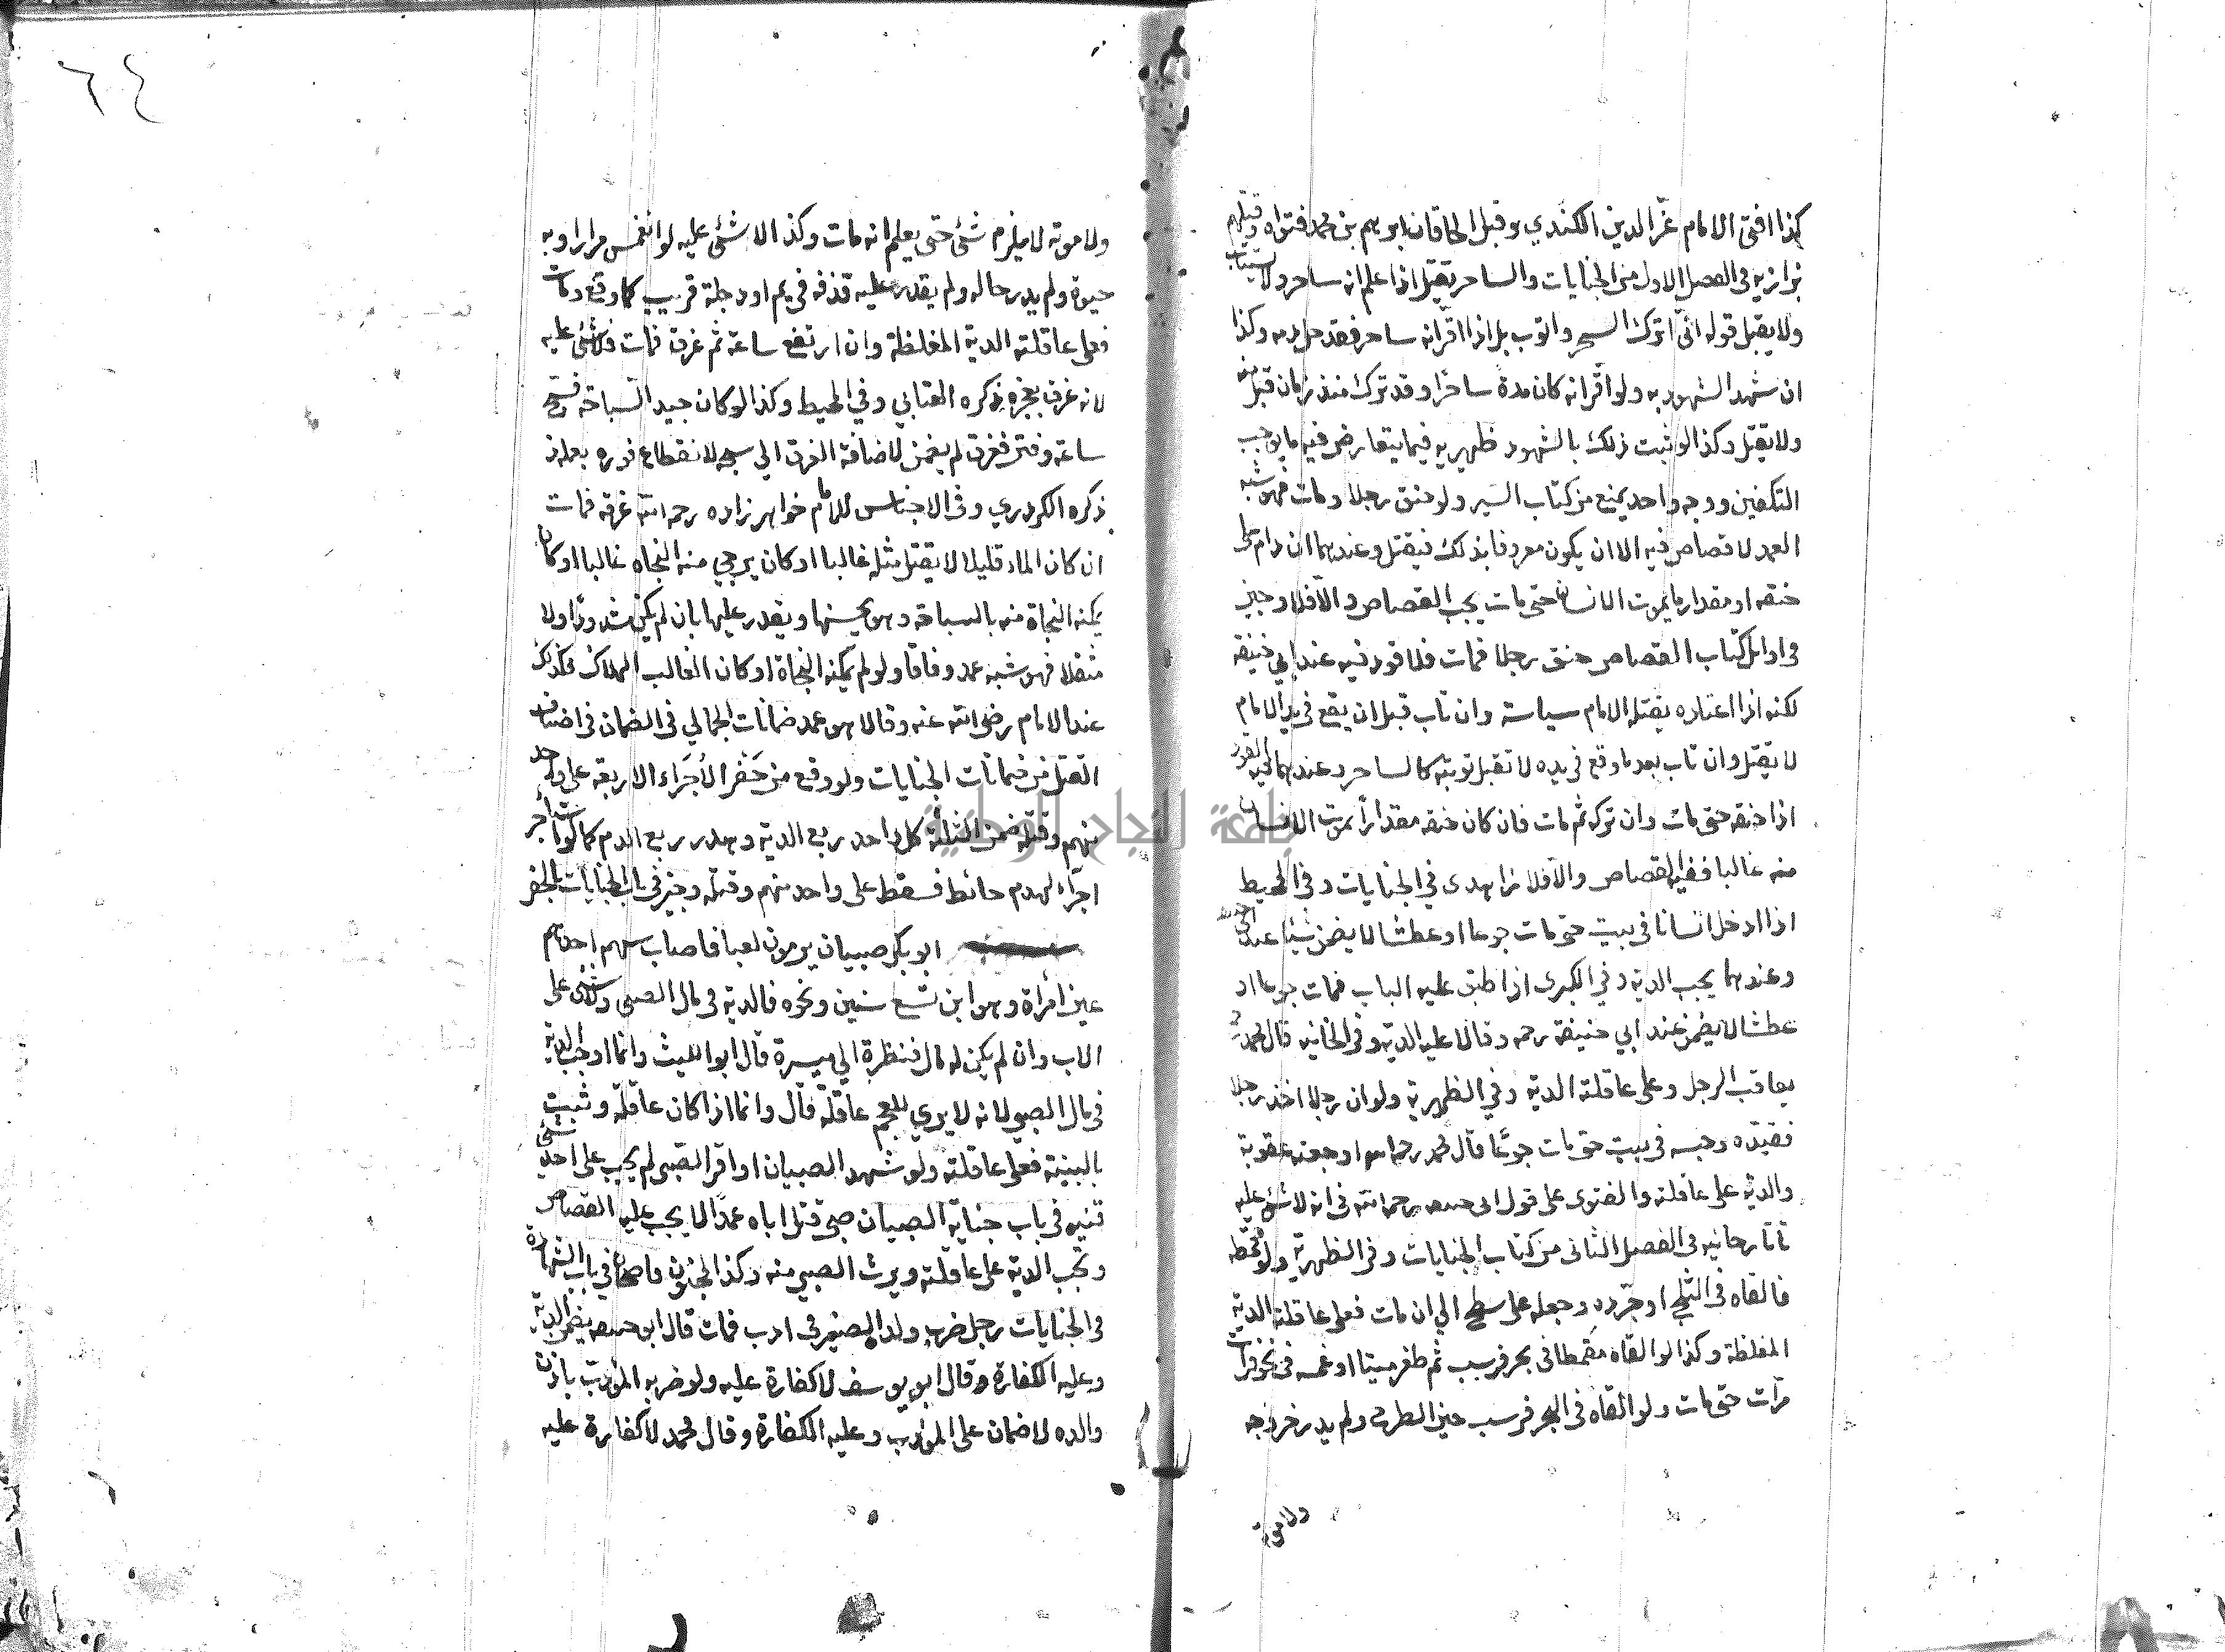 كذا افتى الامام عز الدين الكندي وقبل الخاقان ابرهيم بن محمد فتواه وقتلهم
بزازيه في الفصل الاول من الجنايات والساحر يقتل اذا علم انه ساحر ولا يستتاب
ولا يقبل قوله اني اترك السحر واتوب بل اذا اقر انه ساحر فقد حل دمه وكذا
ان شهد الشهود به ولو اقر انه كان مدة ساحرا وقد ترك منذ زمان قبل منه
ولا يقتل وكذا لو ثبت ذلك بالشهود ظهيريه فيما يتعارض فيه ما يوجب
التكفير ووجه واحد يمنع من كتاب السير ولو خنق رجلا ومات فهو شبه
العمد لا قصاص فيه الا ان يكون معروفا بذلك فيقتل وعندهما ان دام على
خنقه او مقدار ما يموت الانسان حتى مات يجب القصاص والا فلا وجيز
في اوايل كتاب القصاص خنق رجلا فمات فلا قود فيه عند ابي حنيفة
لكنه اذا اعتاده يقتله الامام سياسة وان تاب قبل ان يقع في يد الامام
لا يقتل وان تاب بعد ما وقع في يده لا تقبل توبته كالساحر وعندهما فيه القود
اذا خنقه حتى مات وان ترك ثم مات فان كان خنقه مقدارا يموت الانسان
منه غالبا ففيه القصاص والا فلا زاهدى في الجنايات وفي المحيط
اذا ادخل انسانا في بيت حتى مات جوعا او عطشا لا يضمن شيئا عند ابي حنيفة
وعندهما يجب الدية وفي الكبرى اذا طبق عليه الباب فمات جوعا او
عطشا لا يضمن عند ابي حنيفة رحمه وقالا عليه الدية وفي الخانيه قال محمد
يعاقب الرجل وعلى عاقلته الدية وفي الظهيرية ولو ان رجلا اخذ رجلا
فقيده وحبسه في بيت حتى مات جوعا قال محمد رحمه الله اوجعته عقوبة
والدية على عاقلته والفتوى على قول ابي حنيفه رحمه الله في انه لا شئ عليه
تاتارخانيه في الفصل الثاني من كتاب الجنايات وفي الظهيرية ولو قمطه
فالقاه في الثلج او جرده وجعله على سطح الي ان مات فعلى عاقلته الدية
المغلظة وكذا لو القاه مقمطا في بحر فرسب ثم طفر ميتا او غمسه في نحو فرات
مرات حتى مات ولو القاه في البحر فرسب حين الطرح ولم يدر خروجه
ولا موته
٦٤
ولا موته لا يلزم شئ حتى يعلم انه مات وكذا لا شئ عليه لو انغمس مرارا وبه
حيوة ولم يدر حاله ولم يقدر عليه قذفه في يم او دجلة قريب كما وقع ومات
فعلى عاقلته الدية المغلظة وان ارتفع ساعة ثم غرق فمات فلا شئ عليه
لانه غرق بعجزه ذكره العتابي وفي المحيط وكذا لو كان جيد السباحة فسبح
ساعة وفتر فغرق لم يضمن لاضافة الغرق الي سبحه لانقطاع فوره بعمله
ذكره الكردري وفي الاجناس للامام خواهر زاده رحمه الله غرقه فمات
ان كان الماء قليلا لا يقتل مثله غالبا او كان يرجي منه النجاه غالبا او كان
يمكنه النجاة منه بالسباحة وهو يحسنها ويقدر عليها بان لم يكن مشدودا ولا
مثقلا فهو شبه عمد وفاقا ولو لم يمكنه النجاة او كان الغالب الهلاك فكذلك
عند الامام رضي الله عنه وقالا هو عمد ضمانات الجمالي في الضمان في
القتل من ضمانات الجنايات ولو وقع من حفر الاجراء الاربعة على واحد
منهم وقتله ضمن الثلثة كل واحد ربع الدية وهدر ربع الدم كما لو استأجر
اجراء لهدم حائط فسقط على واحد منهم وقتله وجيز في باب الجنايات بالحفر
ابو بكر صبيان يرمون لعبا فاصاب سهم احدهم
عين امرأة وهو ابن تسع سنين ونحوه فالدية في مال الصبي ولا شئ على
الاب وان لم يكن له مال فنظرة الي ميسرة قال ابو الليث وانما اوجب الدية
في مال الصبي لانه لا يري للعجم عاقلة قال وانما اذا كان عاقلة وثبت
بالبينة فعلى عاقلته ولو شهد الصبيان او اقر الصبي لم يجب على احد شئ
قنيه في باب جناية الصبيان صبي قتل اباه عمدا لا يجب عليه القصاص
وتجب الدية على عاقلته ويرث الصبي منه وكذا المجنون قاضيخان في باب الشهادة
في الجنايات رجل ضرب ولده الصغير في ادب فمات قال ابو حنيفه يضمن الدية
وعليه الكفارة وقال ابو يوسف لا كفارة عليه ولو ضربه المؤدب باذن
والده لا ضمان على المؤدب وعليه الكفارة وقال محمد لا كفارة عليه
جامعة النجاح الوطنية